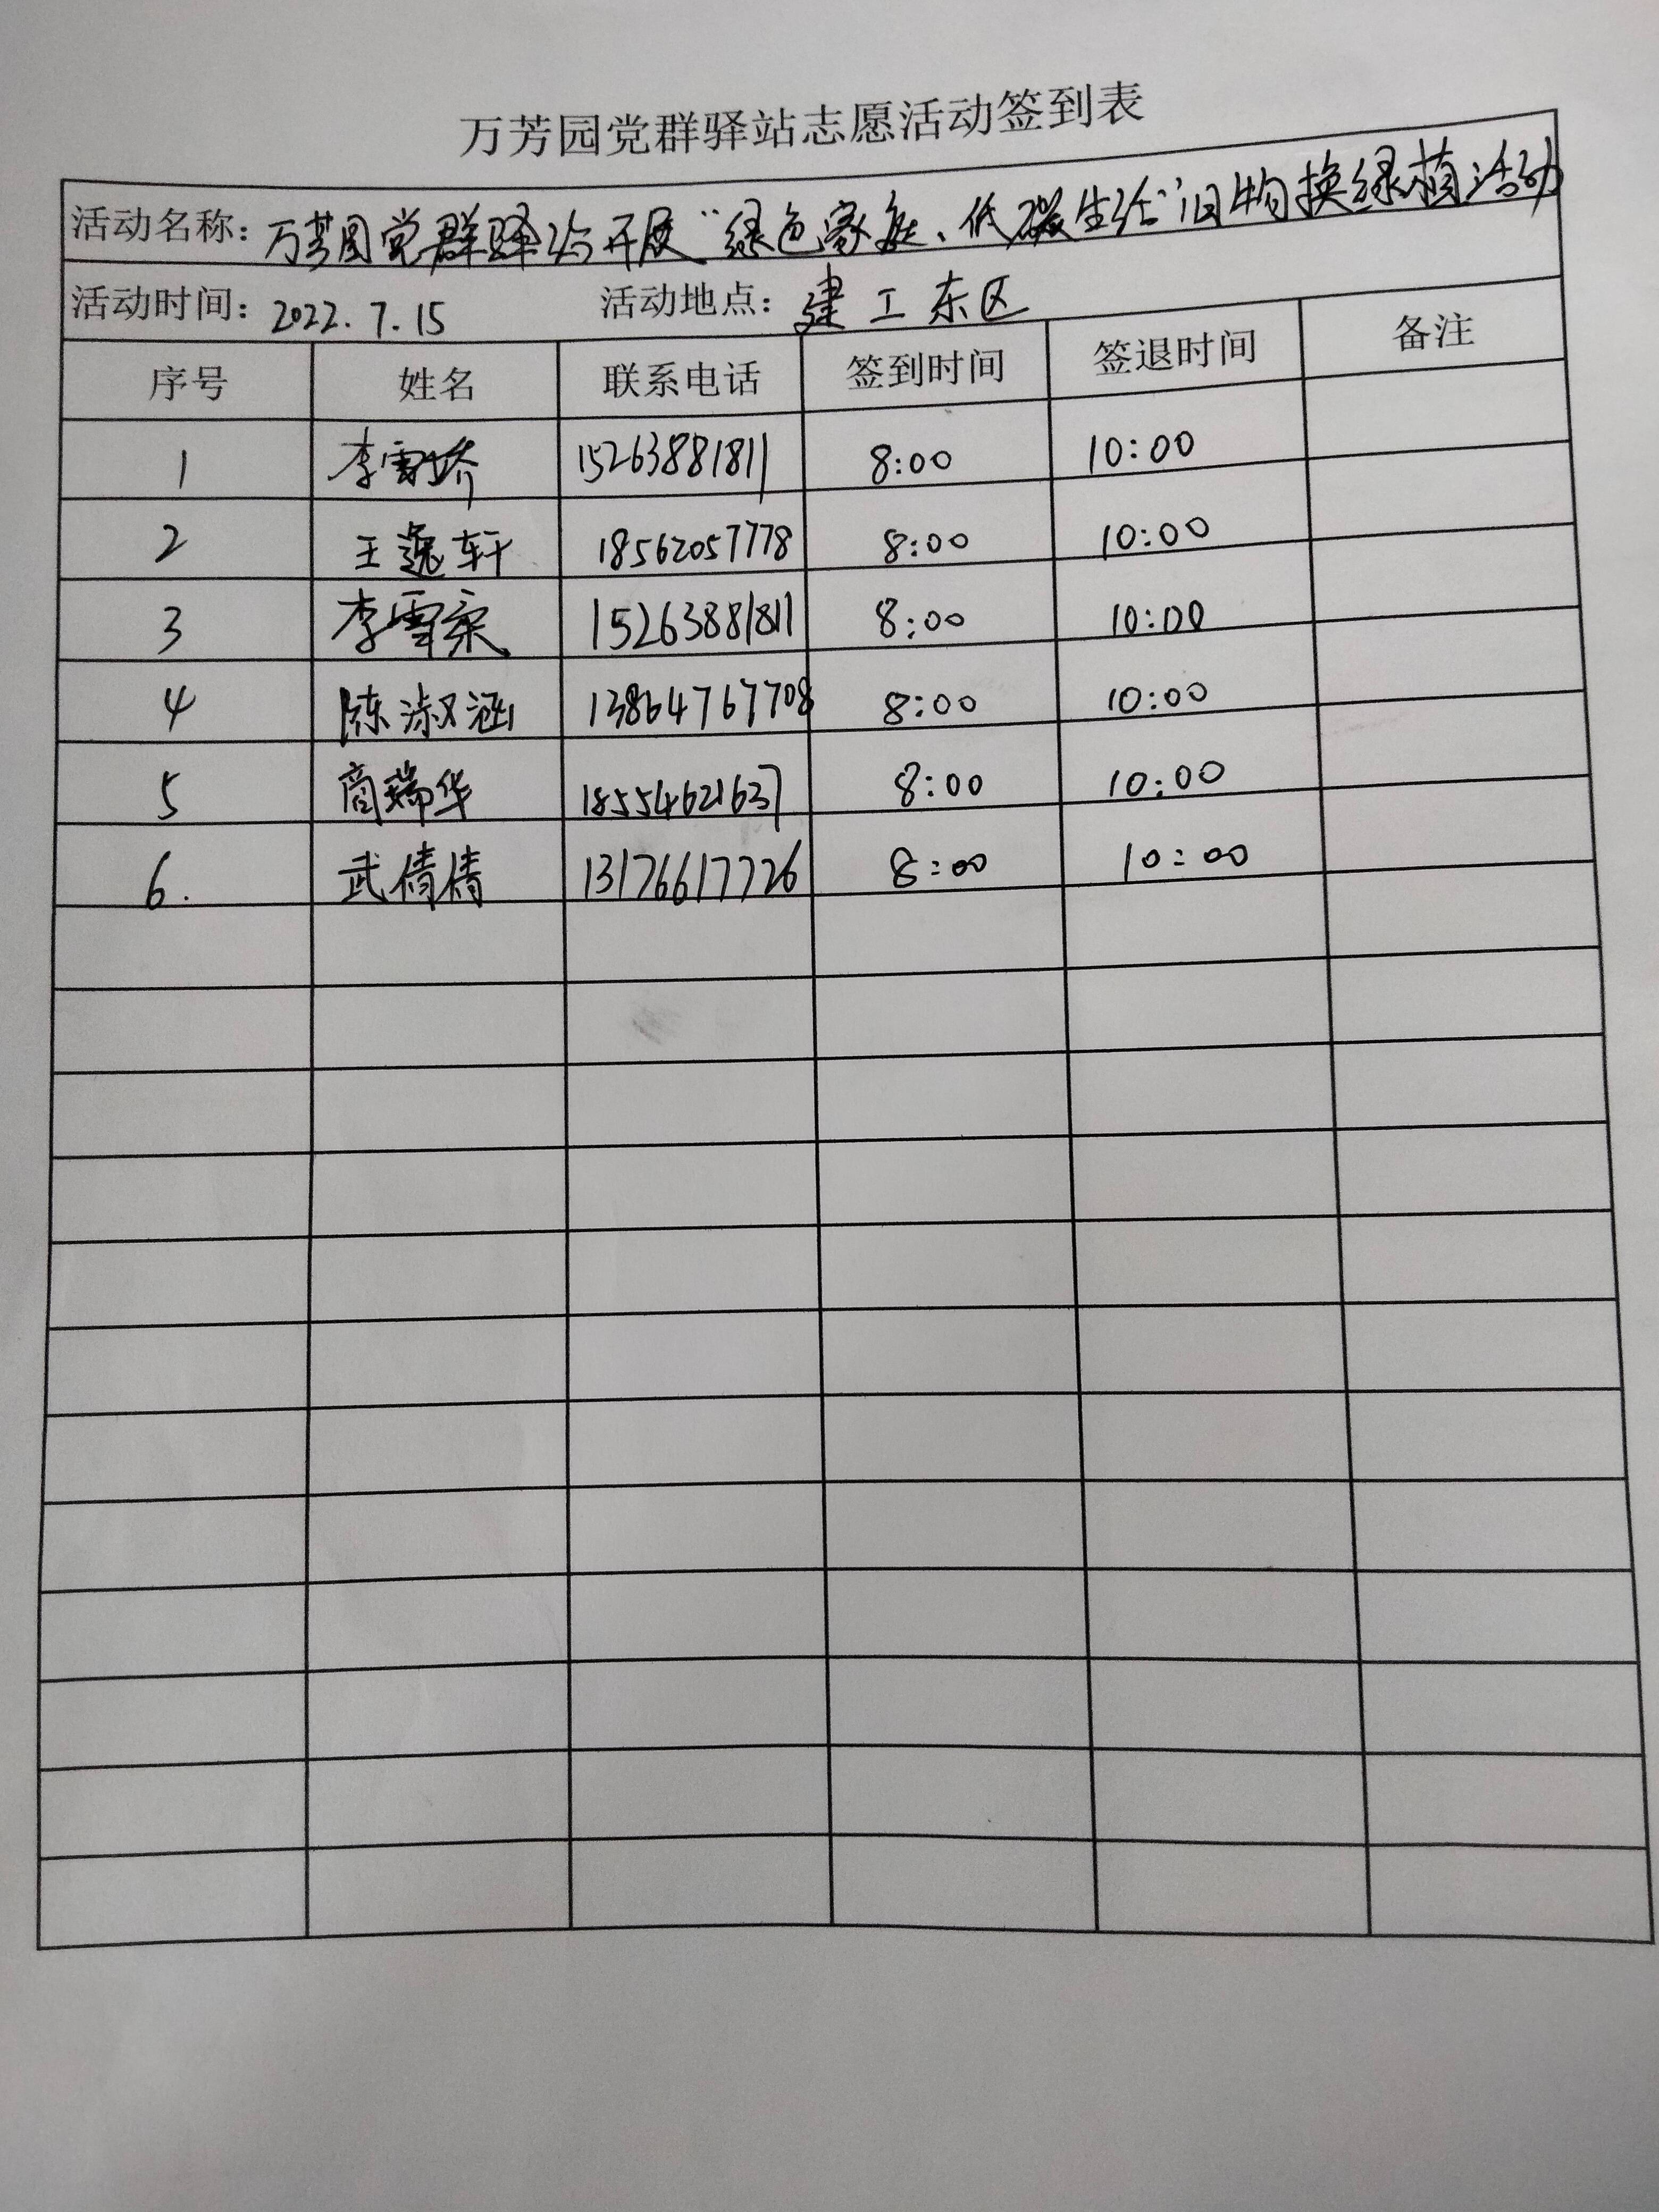 万芳园党群驿站志愿活动签到表
活动名称：万芳园党群驿站开展“绿色家庭、低碳生活”旧物换绿植活动
活动时间：2022.7.15 活动地点：建工东区
序号 姓名 联系电话 签到时间 签退时间 备注
1 李雪娇 15263881811 8:00 10:00
2 王逸轩 18562057778 8:00 10:00
3 李雪 15263881811 8:00 10:00
4 陈淑涵 13864767708 8:00 10:00
5 商瑞华 18554621637 8:00 10:00
6. 武倩倩 13176617726 8:00 10:00